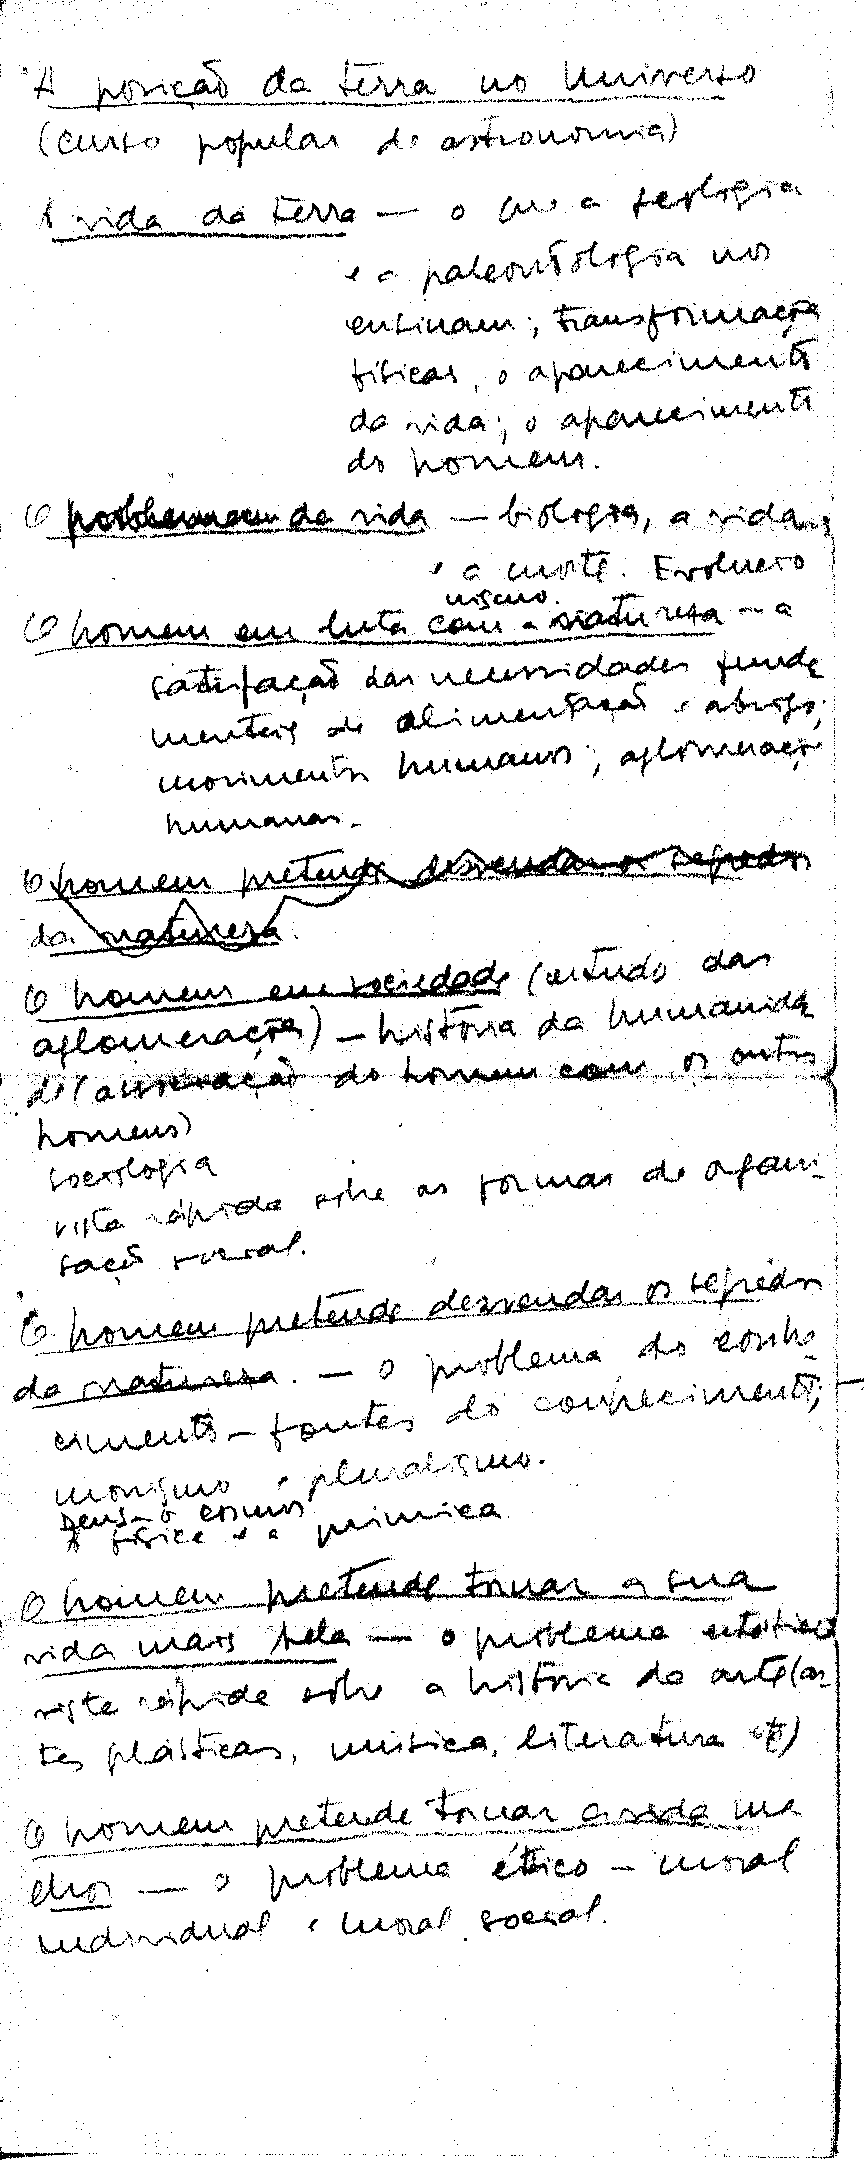 A posição da terra no Universo
(curso popular de astronomia)
A vida da terra — o que a geologia
e a paleontologia nos
ensinam; transformações
físicas, o aparecimento
da vida; o aparecimento
do homem.
O problema da vida — biologia, a vida
e a morte. Evolucio
nismo.
O homem em luta com a natureza — a
satisfação das necessidades funda
mentais de alimentação e abrigo;
movimentos humanos; aglomerações
humanas.
O homem pretende desvendar os segredos
da natureza.
O homem em sociedade (estudo das
aglomerações) — história da humanida
de (associação do homem com os outros
homens)
sociologia
vista rápida sobre as formas de organi-
sação social.
O homem pretende desvendar os segredos
da natureza. — O problema do conhe-
cimento — fontes do conhecimento;
monismo e pluralismo.
Deus – o cosmos
A física e a química
O homem pretende tornar a sua
vida mais bela — o problema estético
vista rápida sobre a história da arte (ar-
tes plásticas, música, literatura etc)
O homem pretende tornar a vida me
lhor — o problema ético — moral
individual e moral social.